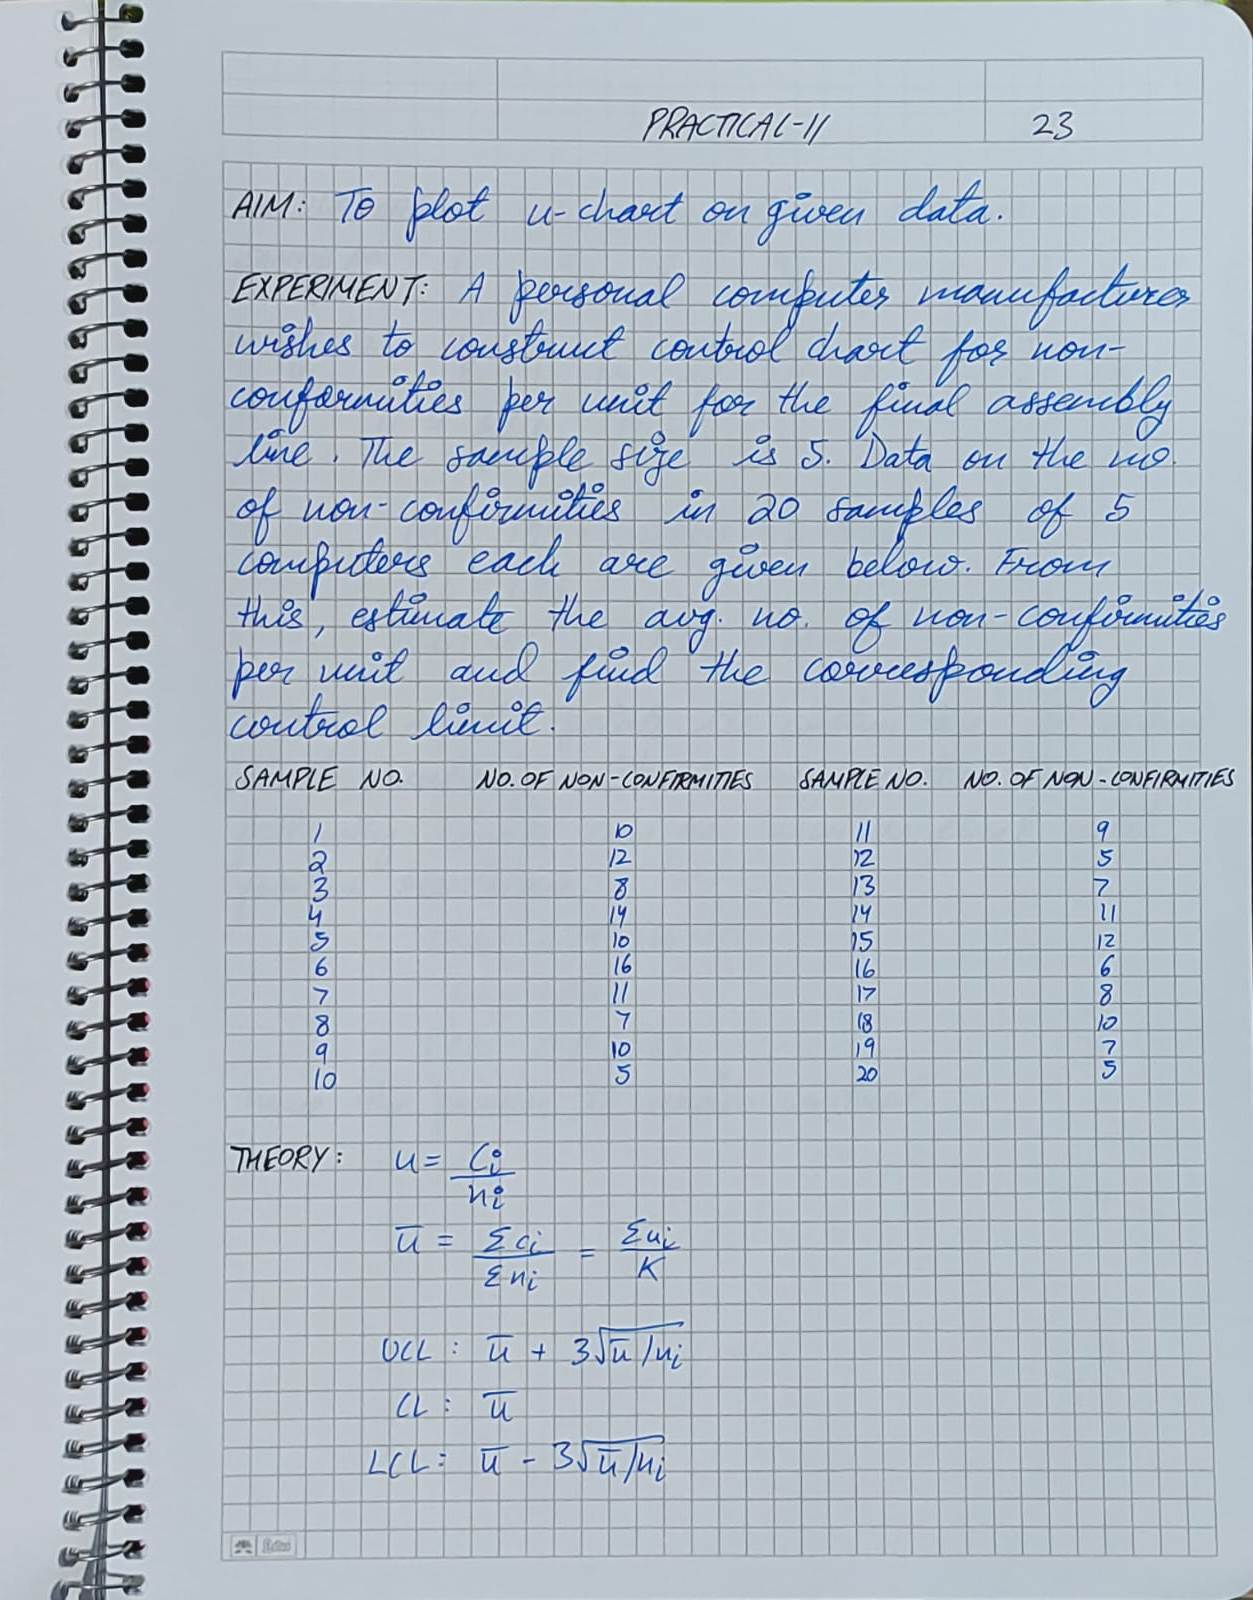 PRACTICAL-11 23
AIM: To plot u-chart on given data.
EXPERIMENT: A personal computer manufacturer
wishes to construct control chart for non-
conformities per unit for the final assembly
line. The sample size is 5. Data on the no.
of non-confirmities in 20 samples of 5
computers each are given below. From
this, estimate the avg. no. of non-confirmities
per unit and find the corresponding
control limit.
SAMPLE NO. NO. OF NON-CONFIRMITIES SAMPLE NO. NO. OF NON-CONFIRMITIES
1 10 11 9
2 12 12 5
3 8 13 7
4 14 14 11
5 10 15 12
6 16 16 6
7 11 17 8
8 7 18 10
9 10 19 7
10 5 20 5
THEORY: u = Ci / ni
ū = Σci / Σni = Σui / K
UCL : ū + 3√ū/ni
CL : ū
LCL : ū - 3√ū/ni